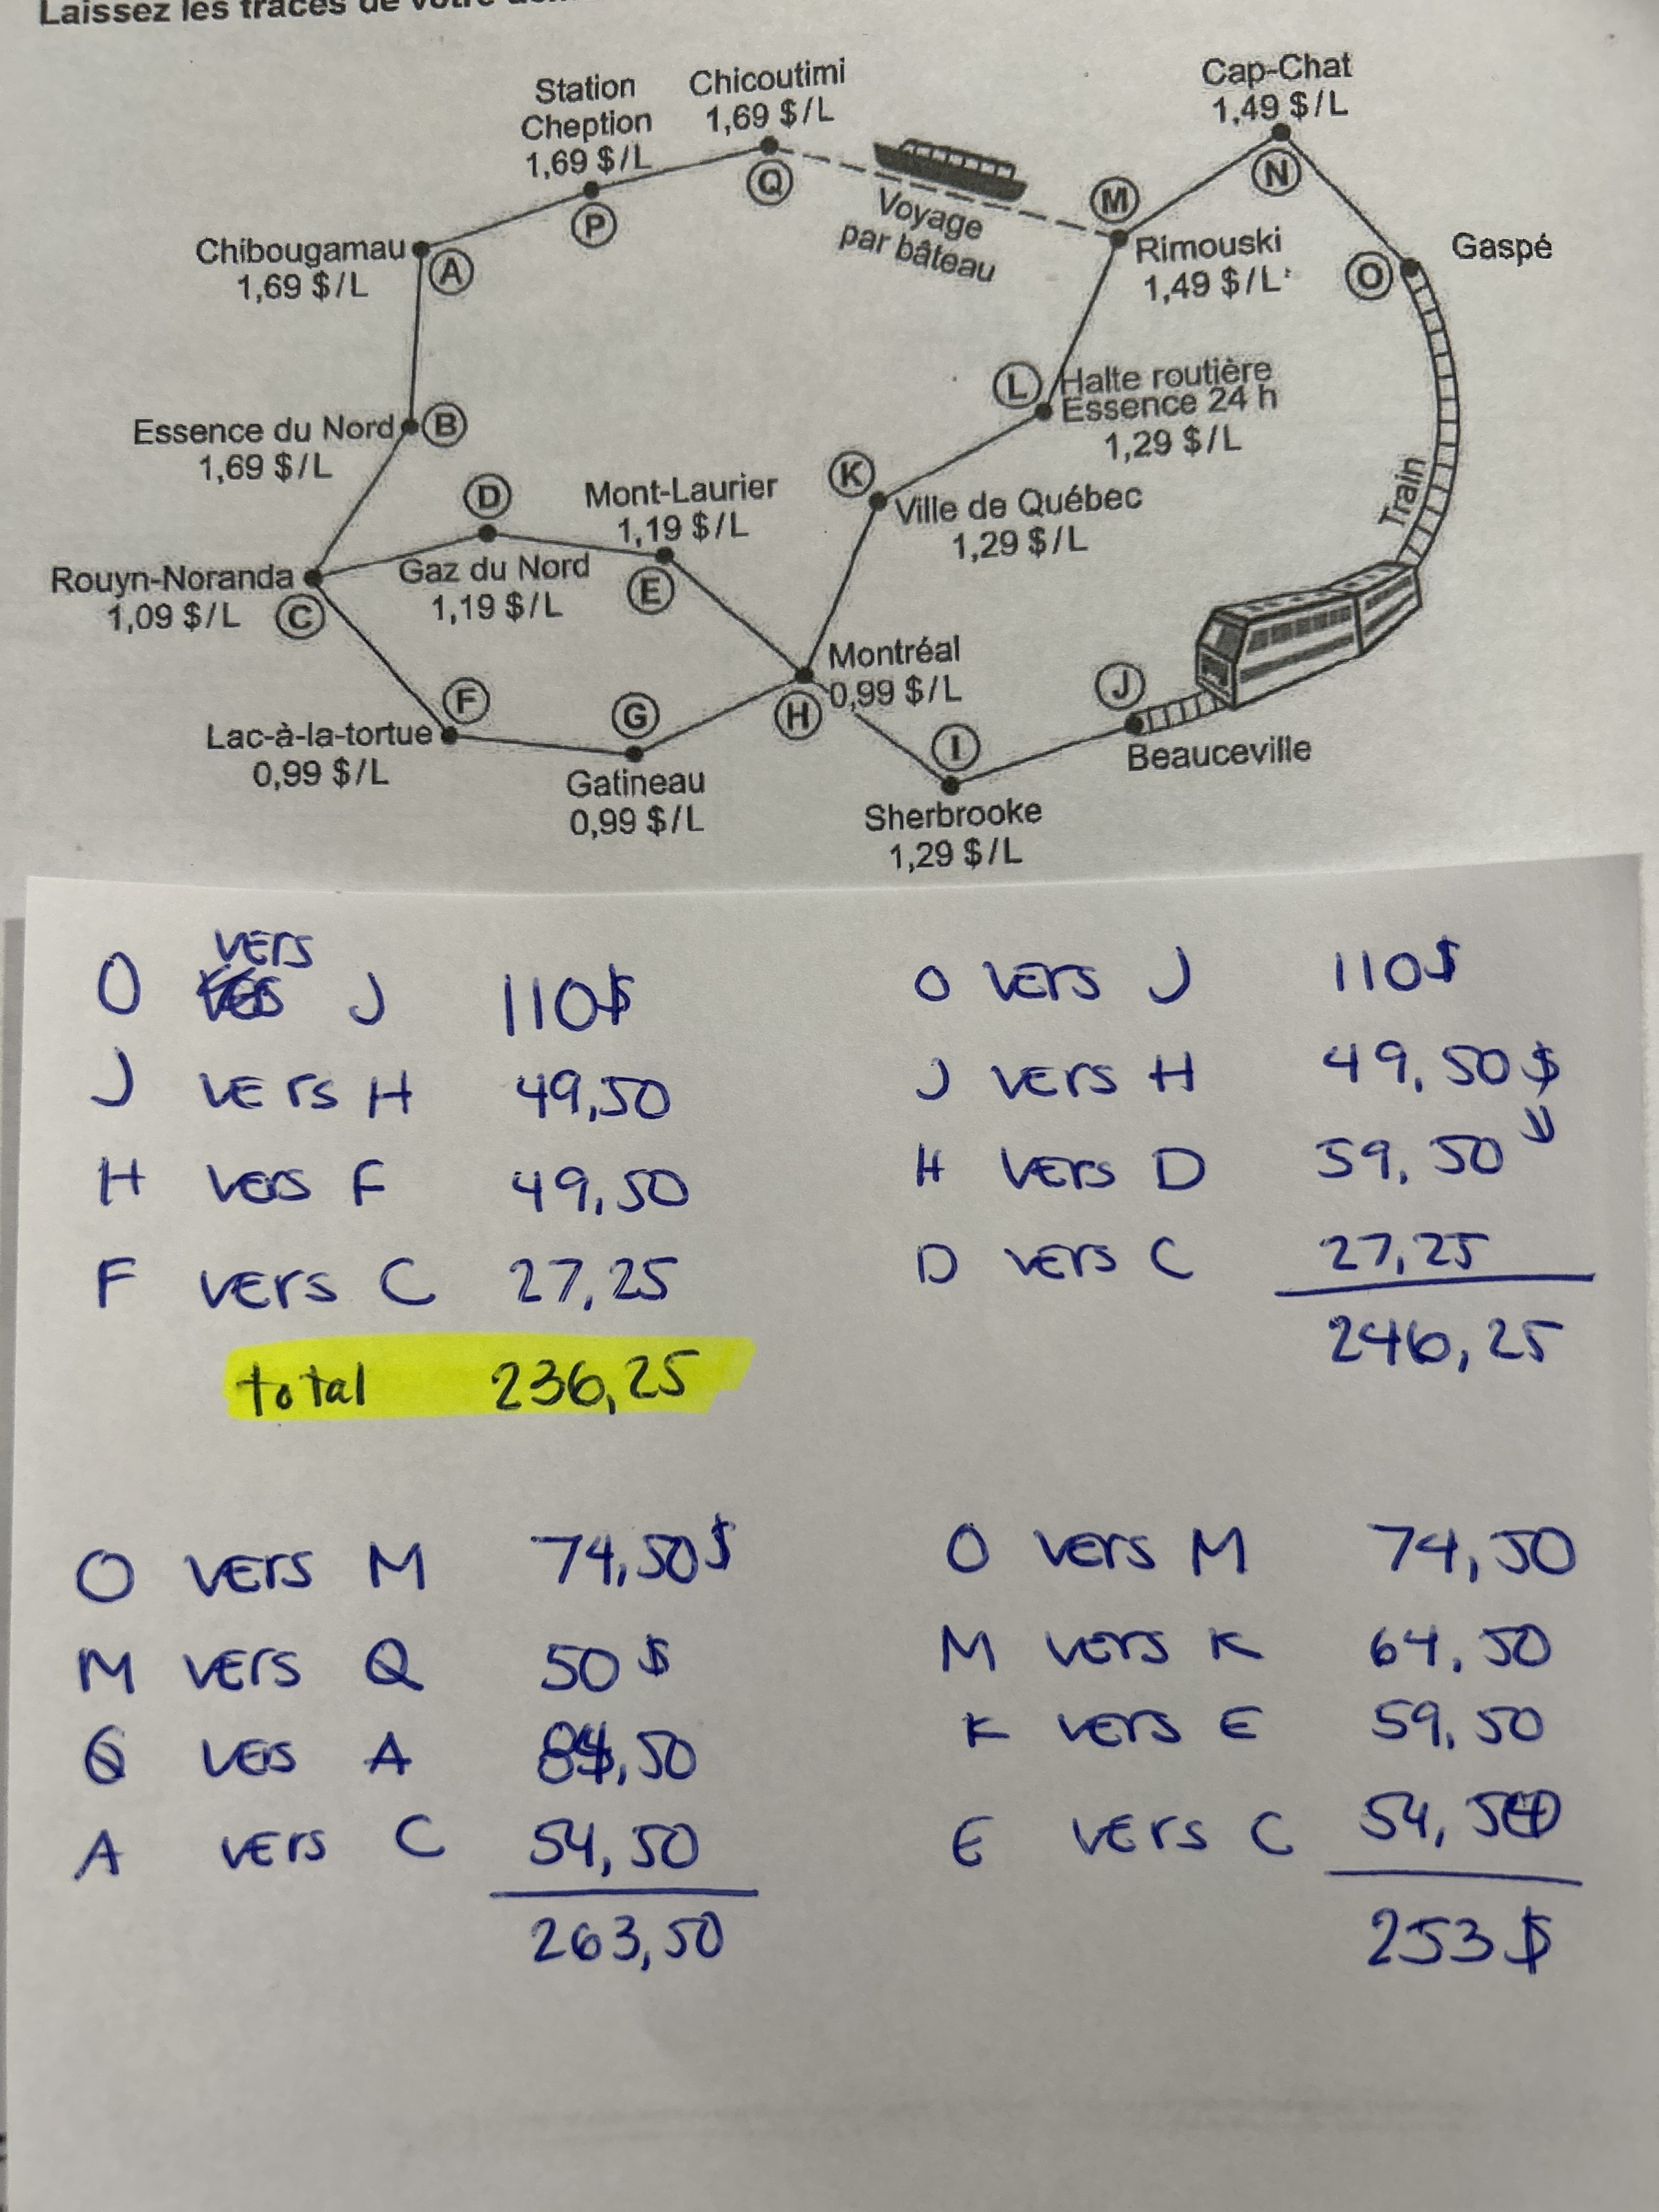 Laissez les traces de votre
Station
Cheption
1,69 $/L
P
Chicoutimi
1,69 $/L
Q
Voyage
par bâteau
Cap-Chat
1,49 $/L
N
M
Rimouski
1,49 $/L
Gaspé
O
Chibougamau
1,69 $/L
A
L
Halte routière
Essence 24 h
1,29 $/L
Essence du Nord
1,69 $/L
B
D
Gaz du Nord
1,19 $/L
Mont-Laurier
1,19 $/L
E
K
Ville de Québec
1,29 $/L
Train
Rouyn-Noranda
1,09 $/L
C
Montréal
0,99 $/L
H
F
Lac-à-la-tortue
0,99 $/L
G
Gatineau
0,99 $/L
J
Beauceville
I
Sherbrooke
1,29 $/L
O vers J 110$
J vers H 49,50
H vers F 49,50
F vers C 27,25
total 236,25
O vers J 110$
J vers H 49,50$
H vers D 59,50
D vers C 27,25
246,25
O vers M 74,50$
M vers Q 50$
Q vers A 84,50
A vers C 54,50
263,50
O vers M 74,50
M vers K 64,50
K vers E 59,50
E vers C 54,50
253$